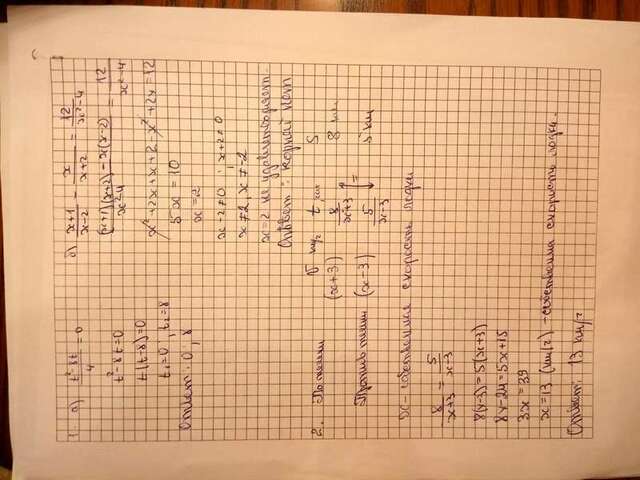 1. а) (t²-8t)/4 = 0
t²-8t=0
t(t-8)=0
t₁=0, t₂=8
Ответ: 0; 8
б) (x+1)/(x-2) - x/(x+2) = 12/(x²-4)
((x+1)(x+2)-x(x-2))/(x²-4) = 12/(x²-4)
x²+2x+x+2-x²+2x=12
5x=10
x=2
x-2≠0; x+2≠0
x≠2, x≠-2
x=2 не удовлетворяет.
Ответ: корней нет
2. V км/ч t, час S
По течению (x+3) 8/(x+3) 8 км
=
Против течения (x-3) 5/(x-3) 5 км
x-собственная скорость лодки
8/(x+3) = 5/(x-3)
8(x-3)=5(x+3)
8x-24=5x+15
3x=39
x=13 (км/ч) -собственна скорость лодки.
Ответ: 13 км/ч